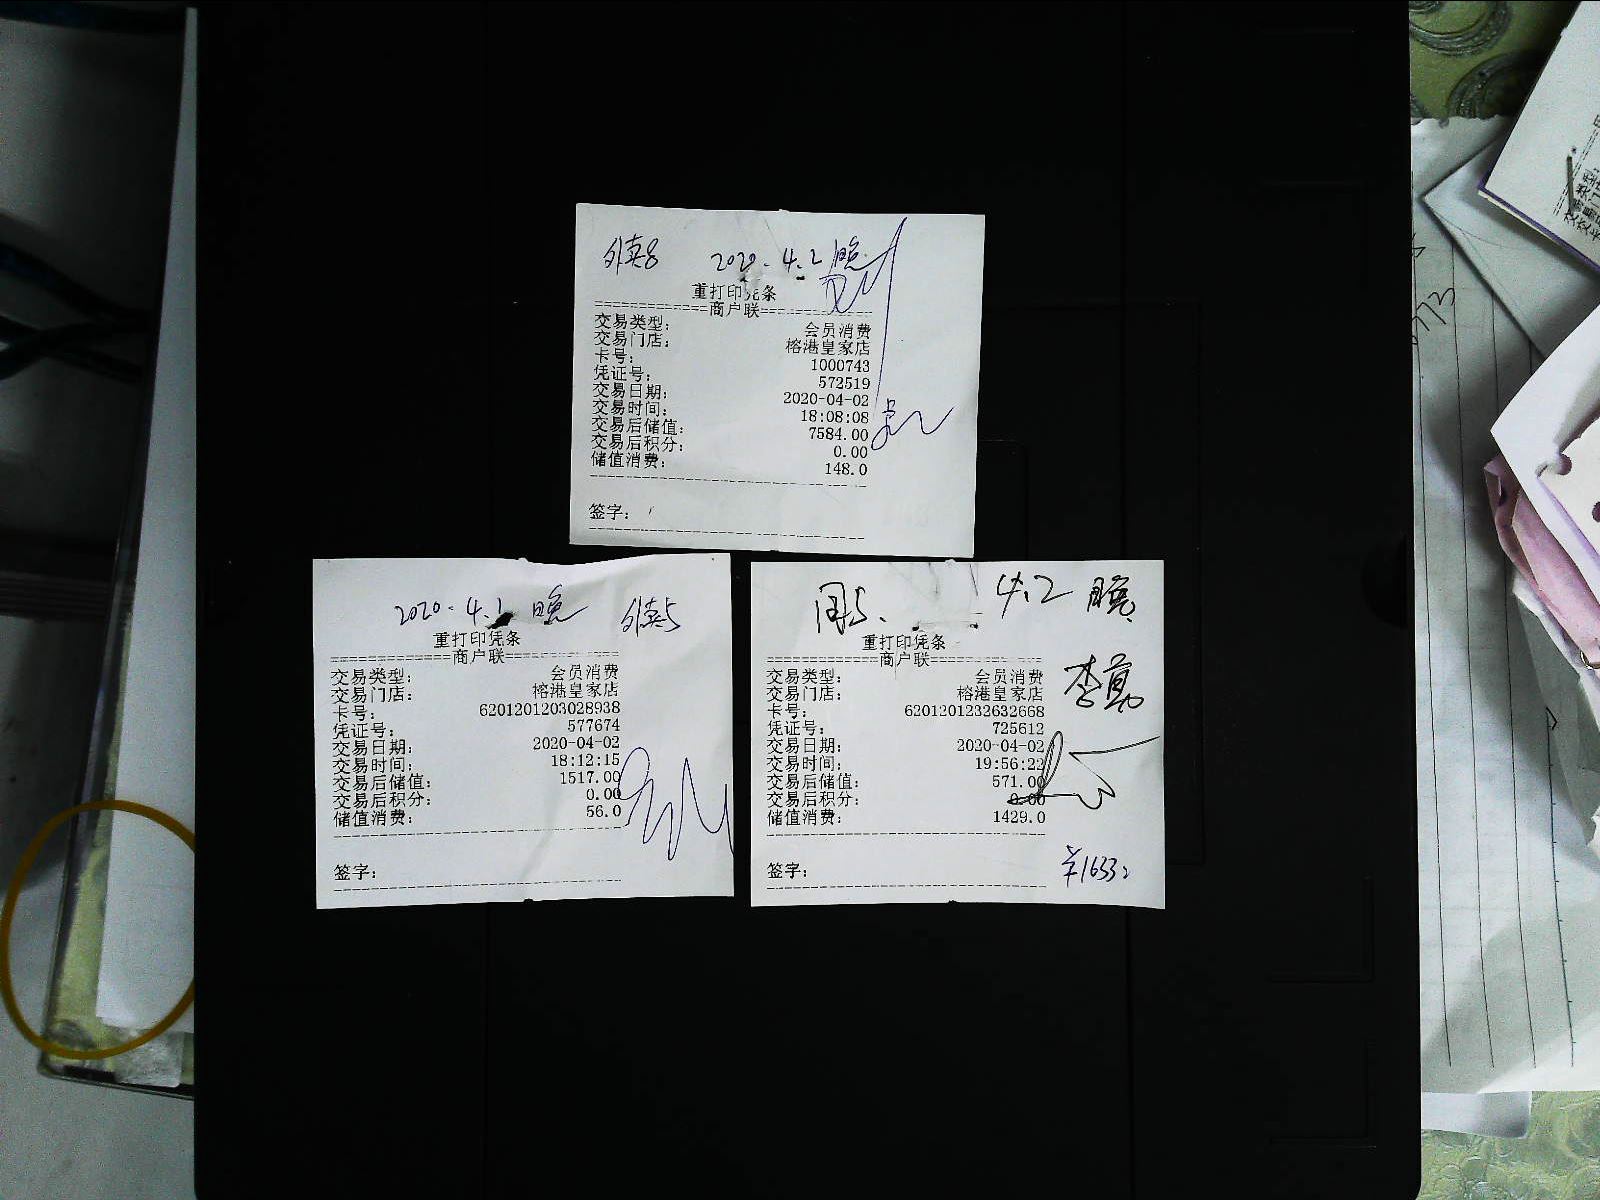 外卖8 2020.4.2 晚
重打印凭条
============商户联============
交易类型: 会员消费
交易门店: 榕港皇家店
卡号: 1000743
凭证号: 572519
交易日期: 2020-04-02
交易时间: 18:08:08
交易后储值: 7584.00
交易后积分: 0.00
储值消费: 148.0
签字:
2020.4.1 晚 外卖5
重打印凭条
============商户联============
交易类型: 会员消费
交易门店: 榕港皇家店
卡号: 6201201203028938
凭证号: 577674
交易日期: 2020-04-02
交易时间: 18:12:15
交易后储值: 1517.00
交易后积分: 0.00
储值消费: 56.0
签字:
4.2 晚
重打印凭条
============商户联============
交易类型: 会员消费
交易门店: 榕港皇家店
卡号: 6201201232632668
凭证号: 725612
交易日期: 2020-04-02
交易时间: 19:56:22
交易后储值: 571.00
交易后积分: 0.00
储值消费: 1429.0
签字: